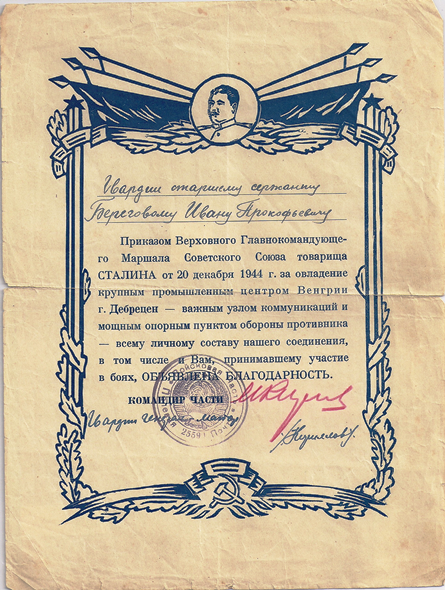 Гвардии старшему сержанту
Береговому Ивану Прокофьевичу
Приказом Верховного Главнокомандующе-
го Маршала Советского Союза товарища
СТАЛИНА от 20 декабря 1944 г. за овладение
крупным промышленным центром Венгрии
г. Дебрецен — важным узлом коммуникаций и
мощным опорным пунктом обороны противника
— всему личному составу нашего соединения,
в том числе и Вам, принимавшему участие
в боях, ОБЪЯВЛЕНА БЛАГОДАРНОСТЬ.
КОМАНДИР ЧАСТИ
Гвардии генерал-майор